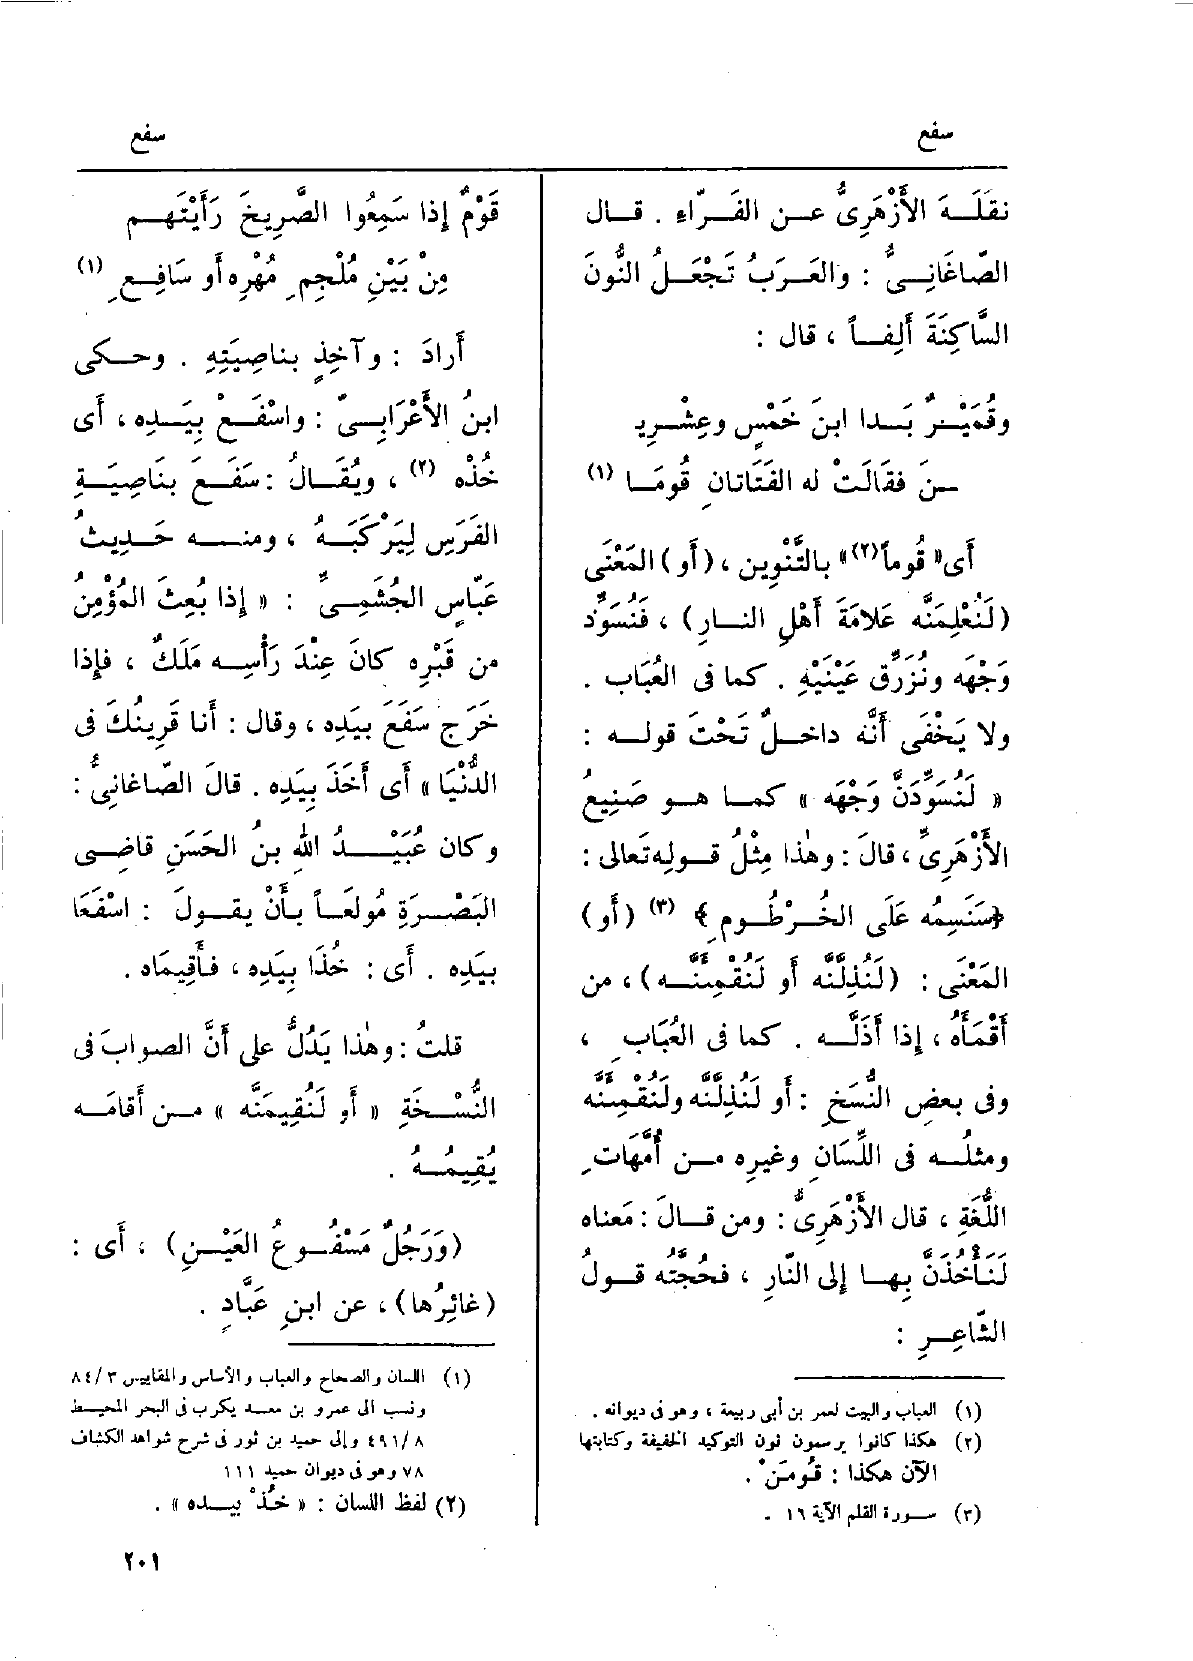 سفع
سفع
نقلَــهَ الأَزْهَرِىُّ عــن الفَــرّاءِ . قــال
الصّاغَانِــىُّ : والعَرَبُ تَجْعَــلُ النُّونَ
السَّاكِنَةَ أَلِفــاً ، قال :
وقُمَيْــرٌ بَــدا ابنَ خَمْسٍ وعِشْــرِيـ
ــنَ فقَالَتْ له الفَتَاتانِ قُومَــا (١)
أَى « قُوماً (٢) » بالتَّنْوِين ، (أَو) المَعْنَى
(لَنُعْلِمَنَّه عَلاَمَةَ أَهْلِ النــارِ) ، فَنُسَوِّدُ
وَجْهَه ونُزَرِّقُ عَيْنَيْهِ . كما فى العُبَاب .
ولا يَخْفَى أَنَّه داخــلٌ تَحْتَ قولــه :
« لَنُسَوِّدَنَّ وَجْهَه » كمــا هــو صَنِيعُ
الأَزْهَرِىِّ ، قالَ : وهٰذا مِثْلُ قــولِه تَعالى :
﴿سَنَسِمُه عَلَى الخُــرْطُــومِ﴾ (٣) (أَو)
المَعْنَى : (لَنُذِلَّنَّه أَو لَنُقْمِئَنَّــه) ، من
أَقْمَأَهُ ، إذا أَذَلَّــه . كما فى العُبَابِ ،
وفى بعضِ النُّسَخِ : أَو لَنُذِلَّنَّه ولَنُقْمِئَنَّه
ومثلُــه فى اللِّسَانِ وغيرِه مــن أُمَّهَاتِ
اللُّغَةِ ، قال الأَزْهَرِىُّ : ومن قــالَ : مَعناه
لَنَأْخُذَنَّ بِهــا إلى النّارِ ، فحُجَّتُه قــولُ
الشّاعِــرِ :
(١) العباب والبيت لعمر بن أبى ربيعة ، وهو فى ديوانه .
(٢) هكذا كانوا يرسمون نون التوكيد الخفيفة وكتابتها
الآن هكذا : قُومَنْ .
(٣) ســورة القلم الآية ١٦ .
قَوْمٌ إذا سَمِعُوا الصَّرِيخَ رَأَيْتَهــم
مِنْ بَيْنِ مُلْجِمِ مُهْرِه أَو سَافِــعِ (١)
أَرادَ : وآخِذٍ بناصِيَتِهِ . وحــكى
ابنُ الأَعْرَابِــىِّ : واسْفَــعْ بِيَــدِه ، أَى
خُذْه (٢) ، ويُقَــالُ : سَفَــعَ بنَاصِيَــةِ
الفَرَسِ لِيَرْكَبَــهُ ، ومنــه حَــدِيثُ
عَبّاسٍ الجُشَمِــىِّ : « إذا بُعِثَ المُؤْمِنُ
من قَبْرِه كانَ عِنْدَ رَأْسِــه مَلَكٌ ، فإِذا
خَرَج سَفَعَ بيَدِه ، وقال : أَنا قَرِينُكَ فى
الدُّنْيَا » أَى أَخَذَ بِيَدِه . قالَ الصّاغانِىُّ :
وكان عُبَيْــدُ اللّٰهِ بنُ الحَسَنِ قاضِــى
البَصْــرَةِ مُولَعــاً بــأَنْ يقــولَ : اسْفَعَا
بيَدِه . أَى : خُذَا بِيَدِه ، فــأَقِيمَاه .
قلتُ : وهٰذا يَدُلُّ على أَنَّ الصوابَ فى
النُّسْــخَةِ « أَو لَنُقِيمَنَّه » مــن أَقامَــه
يُقِيمُــهُ .
(ورَجُلٌ مَسْفُــوعُ العَيْــنِ) ، أَى :
(غائِرُها) ، عن ابنِ عَبّادٍ .
(١) اللسان والصحاح والعباب والأساس والمقاييس ٣/٨٤
ونسب الى عمرو بن معــد يكرب فى البحر المحيــط
٨/٤٩١ وإلى حميد بن ثور فى شرح شواهد الكشاف
٧٨ وهو فى ديوان حميد ١١١
(٢) لفظ اللسان : « خُذْ بيــده » .
٢٠١